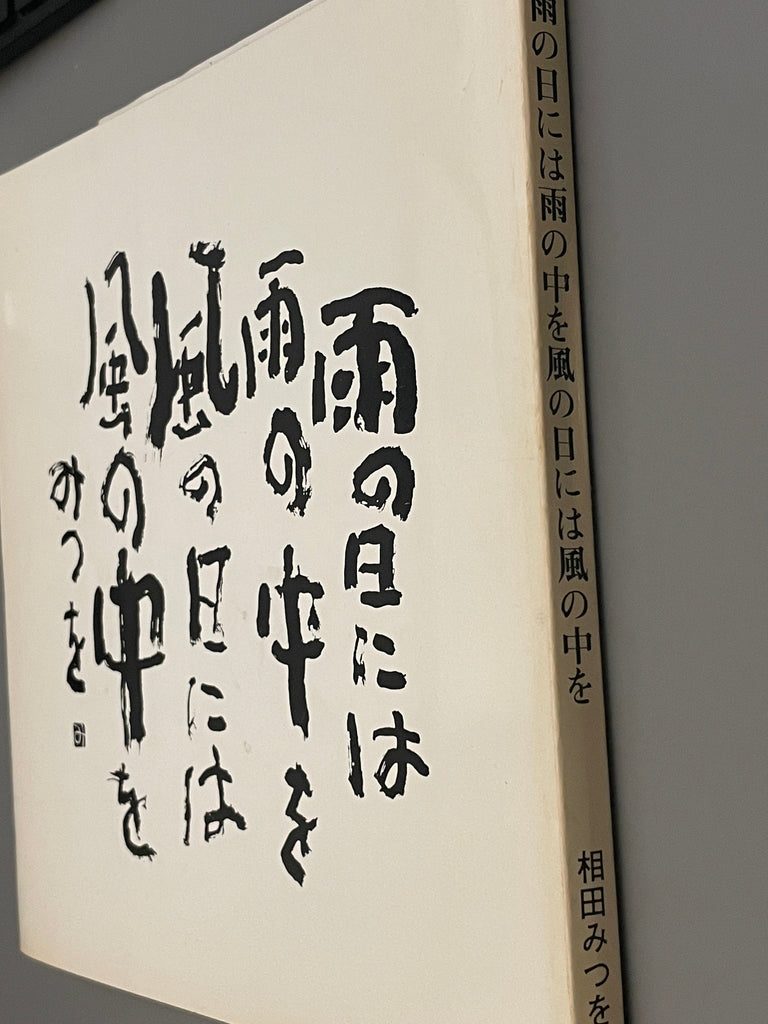 雨の日には
雨の中を
風の日には
風の中を
みつを
み
雨の日には雨の中を風の日には風の中を
相田みつを